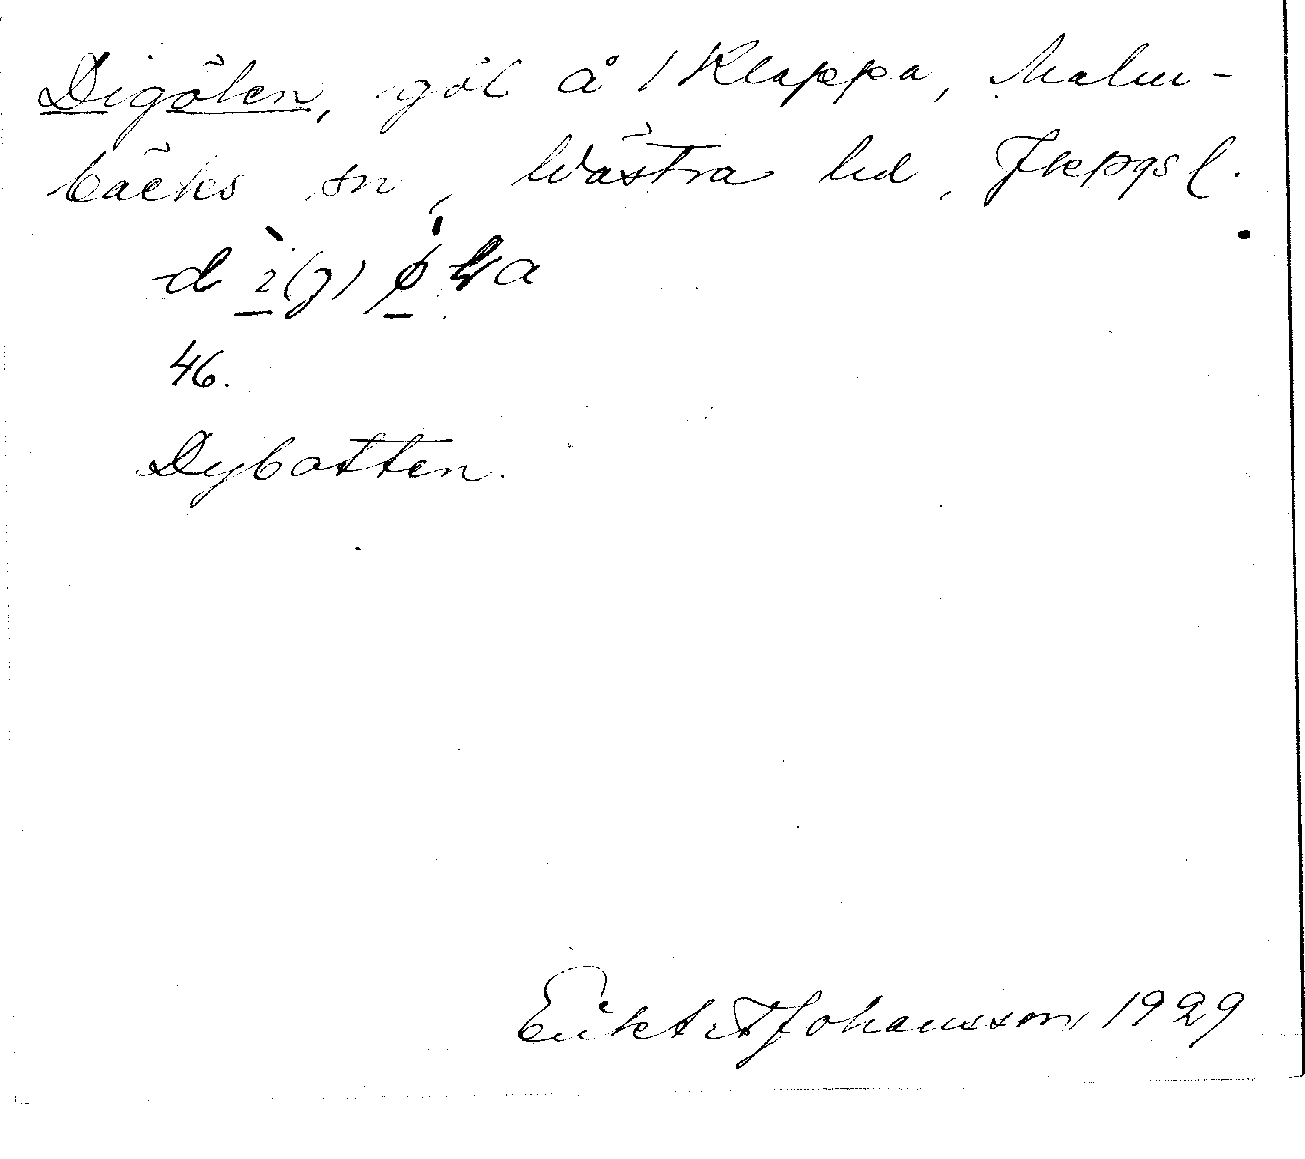 Digölen, göl å 1 Klappa, Malm-
bäcks sn, Västra hd, Jkpgs l.
d i(j) ø ɬ a
46.
Dybotten.
Johansson 1929